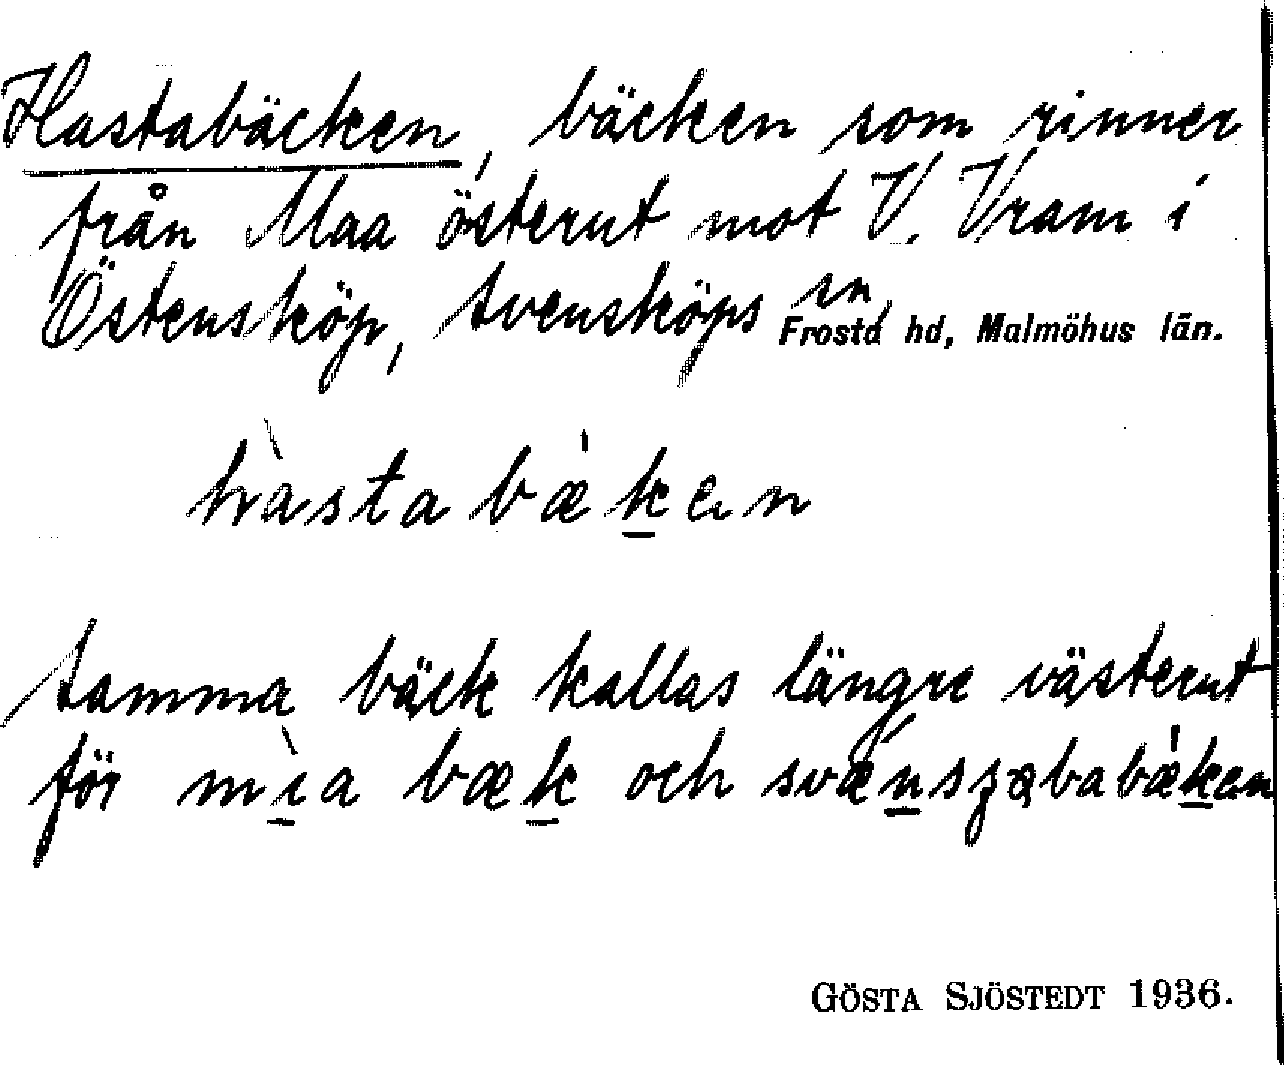 Hastabäcken, bäcken som rinner
från Maa österut mot V. Vram i
Östensköp, Svensköps sn,
Frosta hd, Malmöhus län.
hàstabæ̍k̠en
Samma bäck kallas längre västerut
för mì̠a bæk̠ och
GÖSTA SJÖSTEDT 1936.